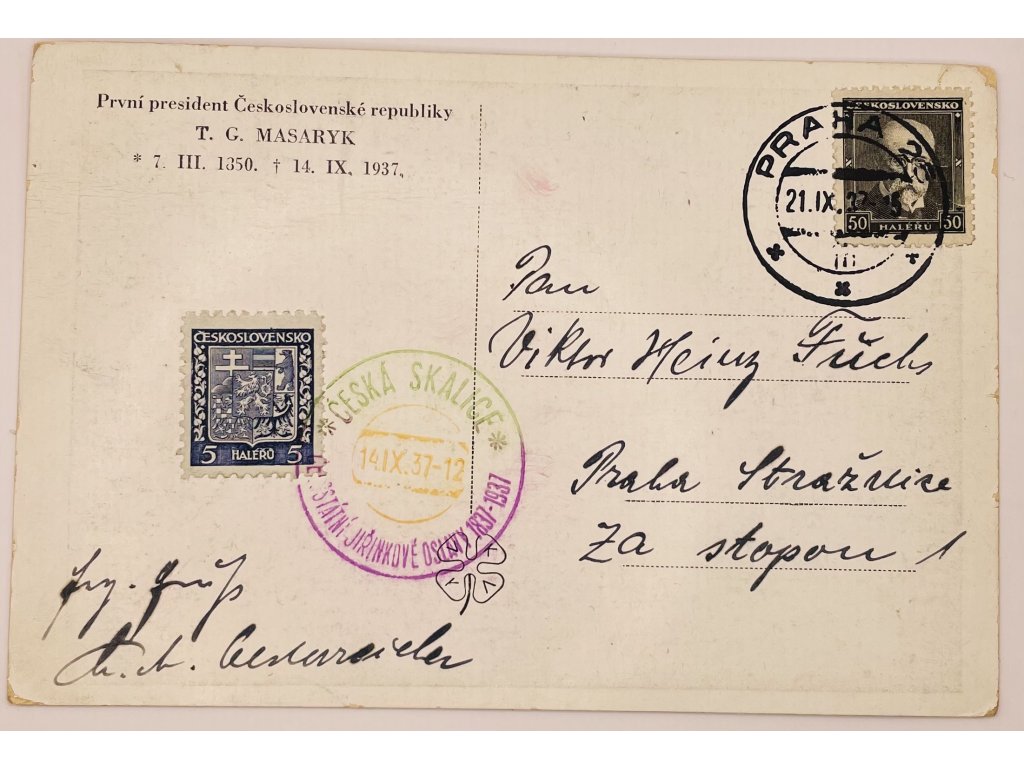 První president Československé republiky
T. G. MASARYK
* 7. III. 1850. † 14. IX. 1937.
ČESKOSLOVENSKO
50 HALÉŘŮ 50
PRAHA 25
21.IX.37-15
Pan
Viktor Heinz Fuchs
Praha Strašnice
Za stopou 1
ČESKOSLOVENSKO
5 HALÉŘŮ 5
* ČESKÁ SKALICE *
14.IX.37-12
STÁTNÍ JIŘINKOVÉ OSLAVY 1837-1937
N K V V
gruß